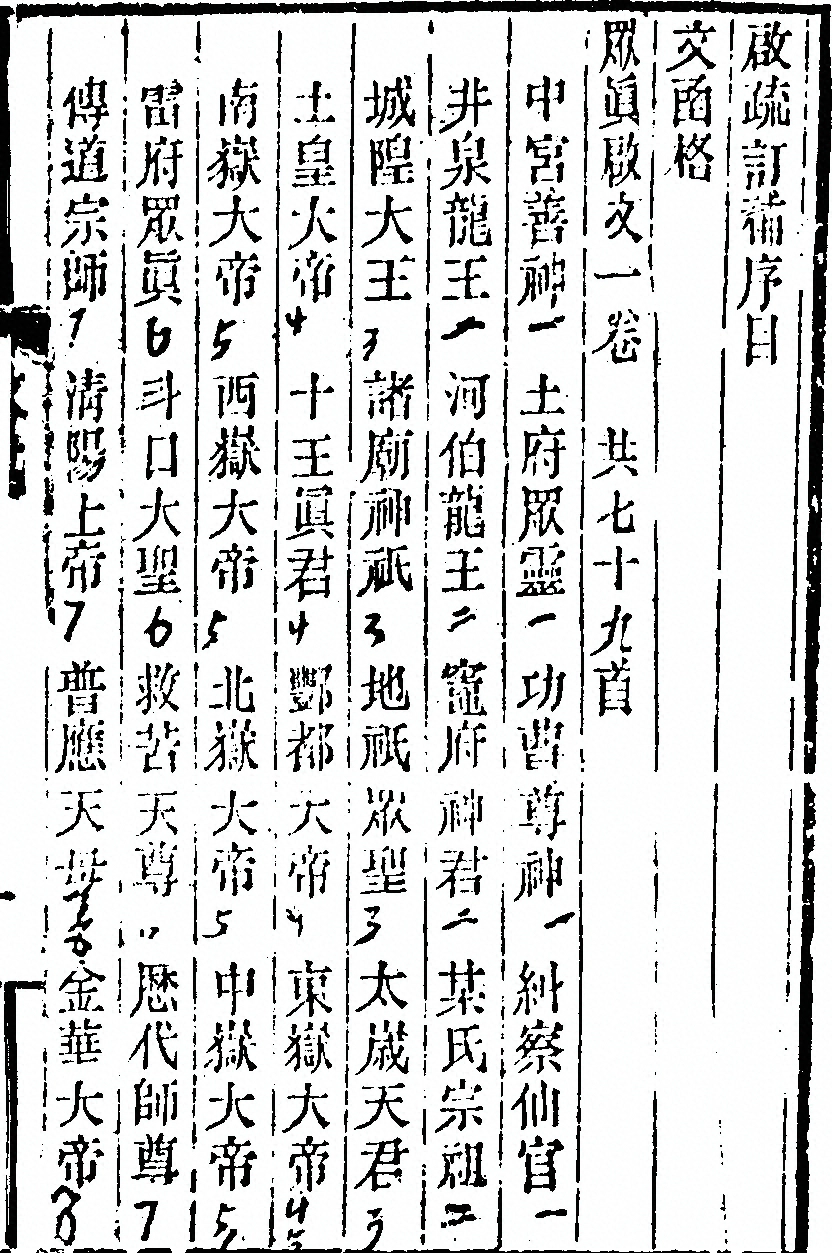 啟疏訂補序目
文函格
眾眞啟文一卷　共七十九首
中宮善神一　土府眾靈一　功曹尊神一　糾察仙官一
井泉龍王一　河伯龍王二　竈府神君二　某氏宗祖二
城隍大王3　諸廟神祇3　地祇眾聖3　太歲天君3
土皇大帝4　十王眞君4　酆都大帝4　東嶽大帝4
南嶽大帝5　西嶽大帝5　北嶽大帝5　中嶽大帝5
雷府眾眞6　斗口大聖6　救苦天尊　歷代師尊7
傳道宗師7　清陽上帝7　普應天母　金華大帝8